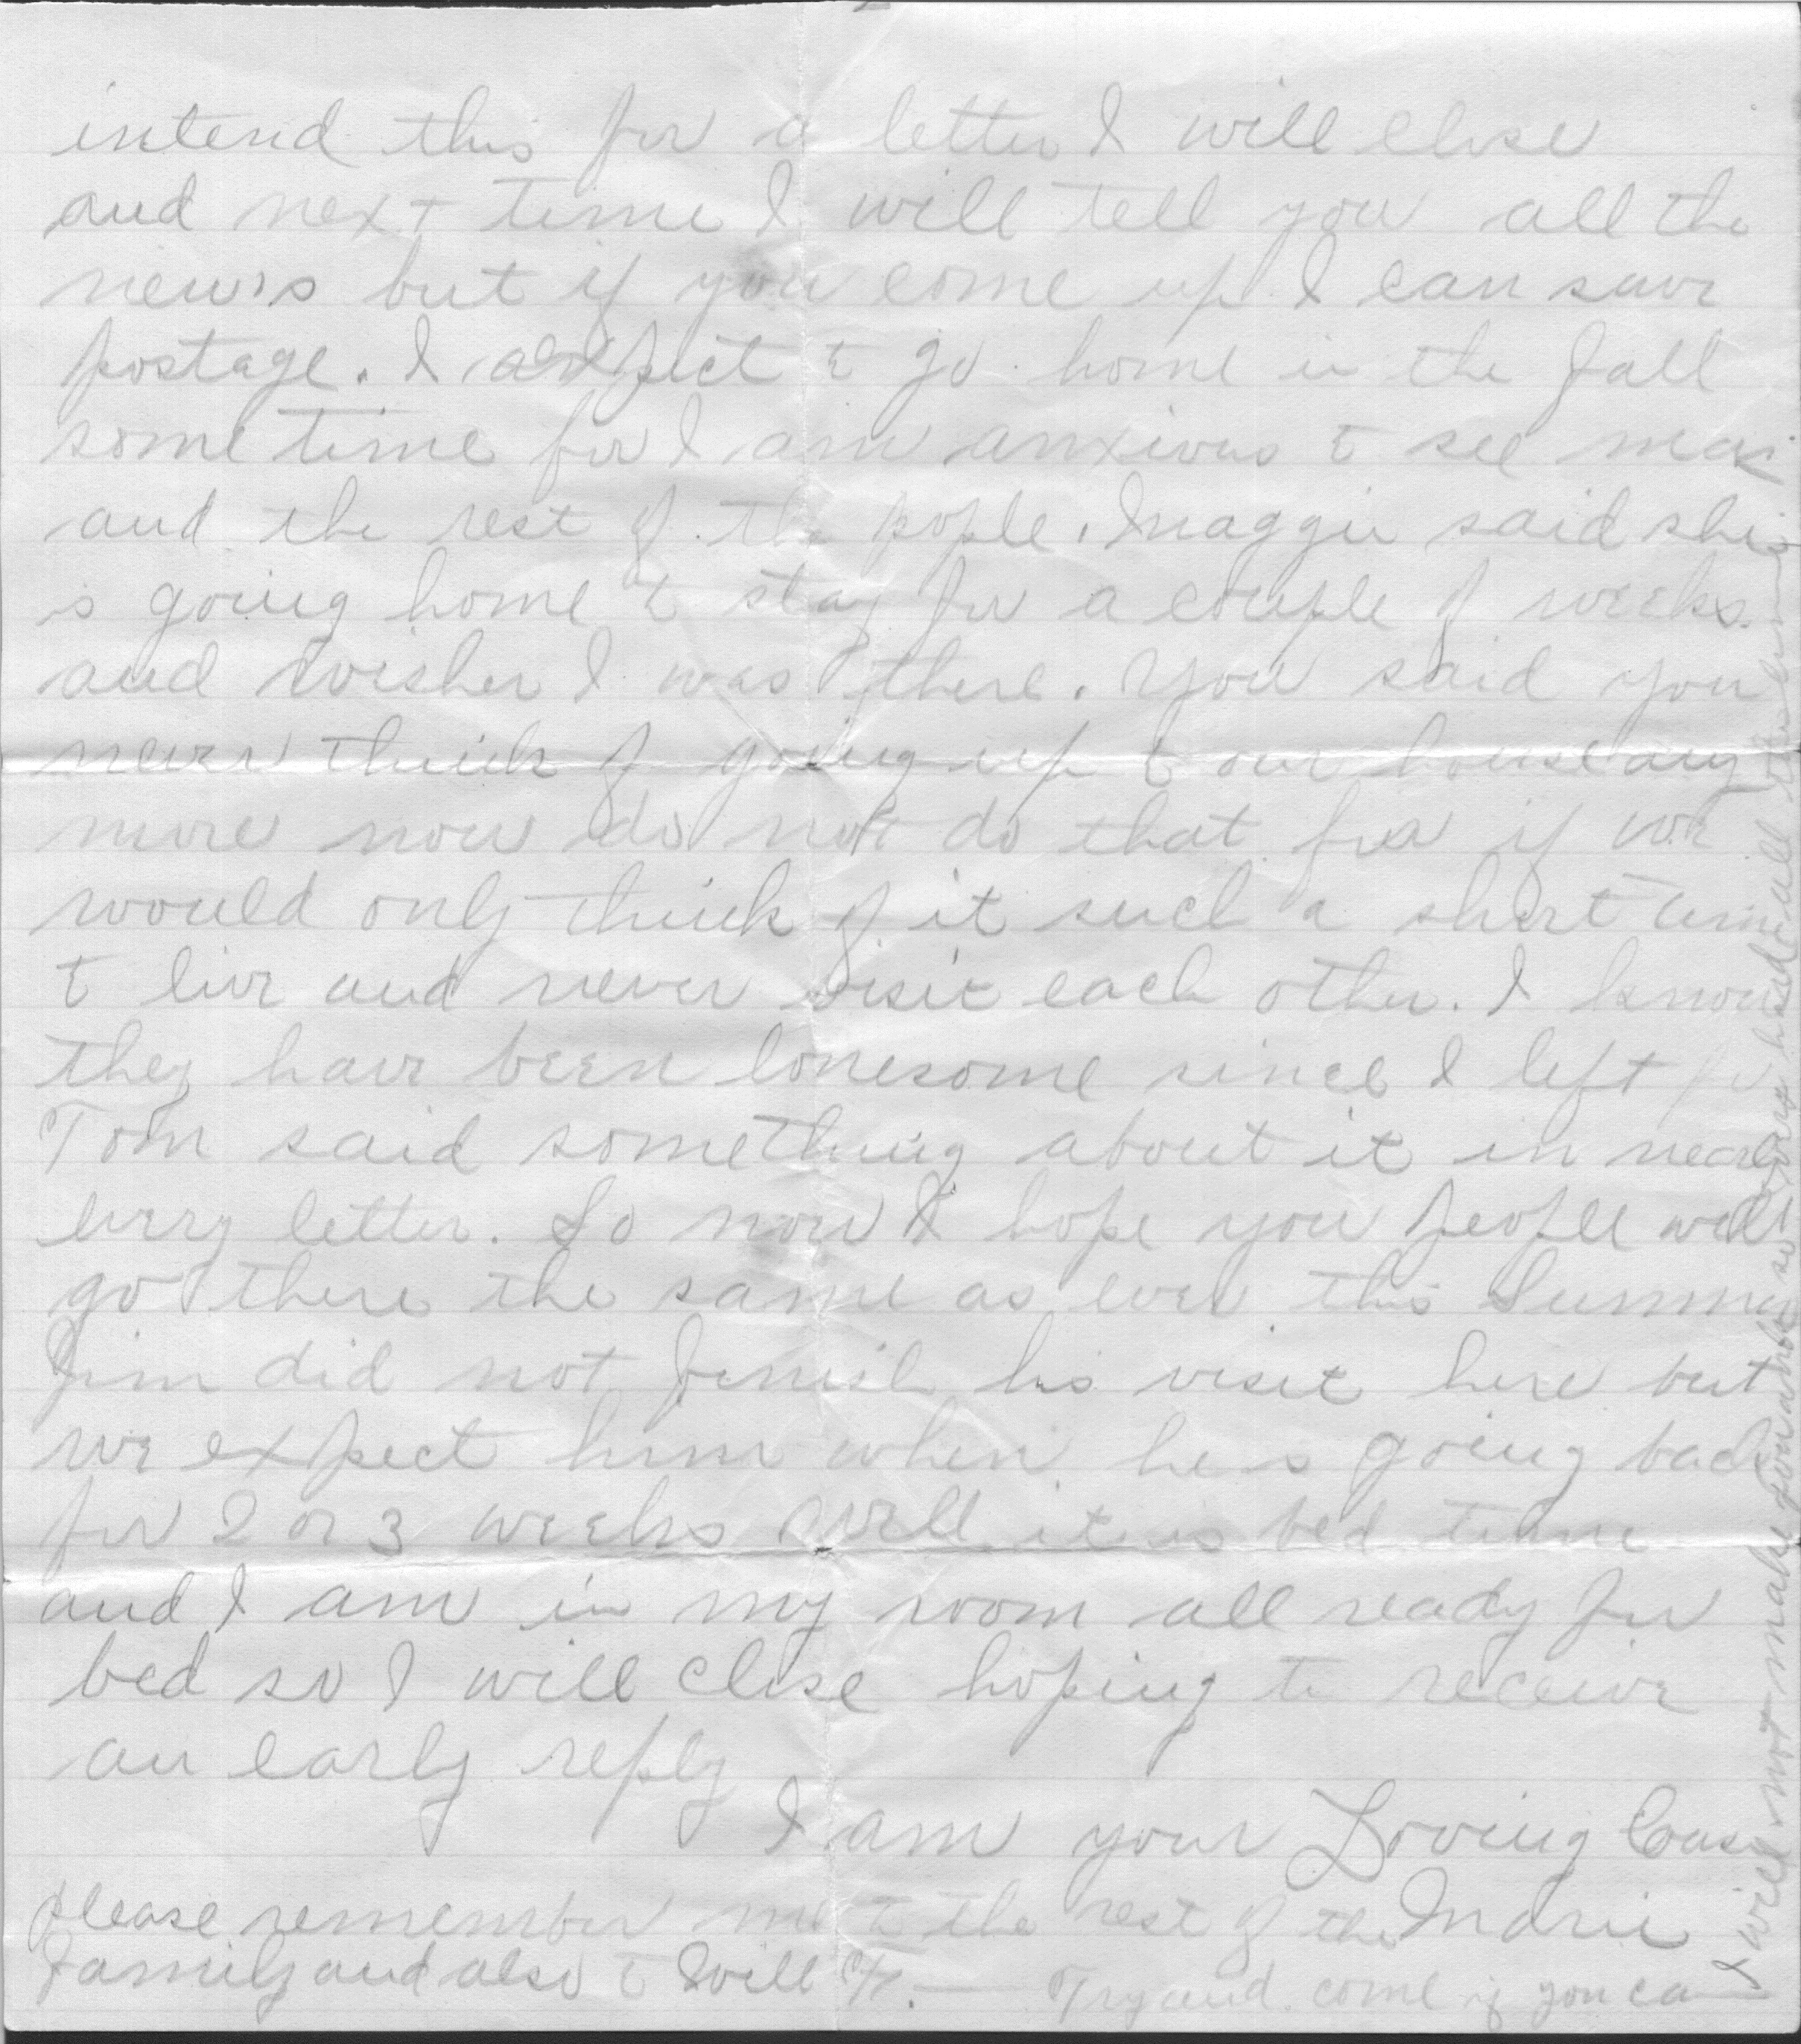 intend this for a letter I will close
and next time I will tell you all the
new's but if you come up I can save
postage. I expect to go home in the fall
some time for I am anxious to see ma
and the rest of the pople. Maggie said she
is going home to stay for a couple of weeks.
and wisher I was there. You said you
never think of going up to our house any
more now do not do that for if we
would only think of it such a short time
to live and never visit each other. I know
they have been lonesome since I left for
Tom said something about it in nearly
every letter. So now I hope you people will
go there the same as ever this Summer
Jim did not finish his visit here but
we expect him when he is going back
for 2 or 3 weeks Well it is bed time
and I am in my room all ready for
bed so I will close hoping to receive
an early reply
I am your Loving Cous
Marie
please remember me to the rest of the
family and also to Will H. — Try and come if you ca
I will not make you a hot so